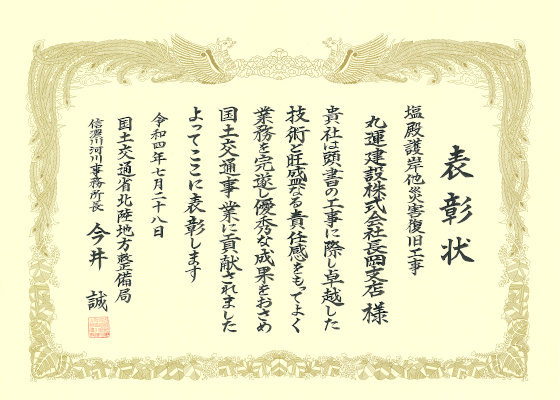 表彰状
塩殿護岸他災害復旧工事
丸運建設株式会社長岡支店 様
貴社は頭書の工事に際し卓越した
技術と旺盛なる責任感をもってよく
業務を完遂し優秀な成果をおさめ
国土交通事業に貢献されました
よってここに表彰します
令和四年七月二十八日
国土交通省北陸地方整備局
信濃川河川事務所長 今井 誠